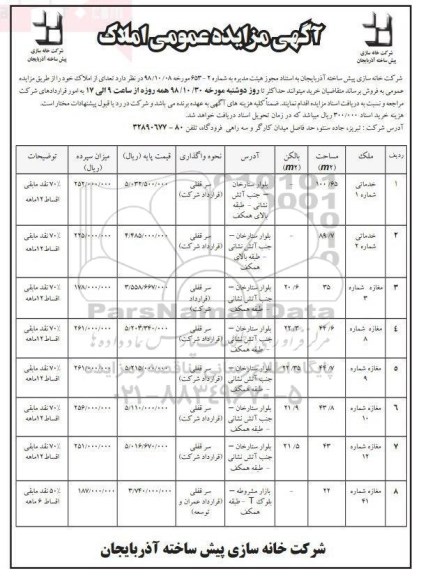 آگهی مزایده عمومی املاک
شرکت خانه سازی
پیش ساخته آذربایجان
شرکت خانه سازی
پیش ساخته آذربایجان
شرکت خانه سازی پیش ساخته آذربایجان به استناد مجوز هیئت مدیره به شماره ۲ – ۶۵۳ مورخه ۹۸/۱۰/۰۸ در نظر دارد تعدای از املاک خود را از طریق مزایده
عمومی به فروش برساند متقاضیان خرید میتوانند حداکثر تا روز دوشنبه مورخه ۹۸/۱۰/۳۰ همه روزه از ساعت ۹ الی ۱۷ به امور قراردادهای شرکت
مراجعه و نسبت به دریافت اسناد مزایده اقدام نمایند. ضمناً کلیه هزینه های آگهی به عهده برنده می باشد و شرکت در رد یا قبول پیشنهادات مختار است.
هزینه خرید اسناد ۳۰۰/۰۰۰ ریال میباشد که در زمان تحویل اسناد دریافت خواهد شد.
آدرس شرکت : تبریز، جاده سنتو، حد فاصل میدان کارگر و سه راهی فرودگاه، تلفن ۸۰ – ۳۲۸۹۰۶۷۷
ردیف ملک مساحت (m۲) بالکن (m۲) آدرس نحوه واگذاری قیمت پایه (ریال) میزان سپرده (ریال) توضیحات
۱ خدماتی شماره ۱ ۱۰۰/۶۵ - بلوار ستارخان – جنب آتش نشانی - طبقه بالای همکف سر قفلی (قرارداد شرکت) ۵/۰۳۲/۵۰۰/۰۰۰ ۲۵۲/۰۰۰/۰۰۰ ۷۰٪ نقد مابقی اقساط ۱۲ماهه
۲ خدماتی شماره ۲ ۸۹/۷ - بلوار ستارخان – جنب آتش نشانی - طبقه بالای همکف سر قفلی (قرارداد شرکت) ۴/۴۸۵/۰۰۰/۰۰۰ ۲۲۵/۰۰۰/۰۰۰ ۷۰٪ نقد مابقی اقساط ۱۲ماهه
۳ مغازه شماره ۳ ۳۵ ۲۰/۶ بلوار ستارخان – جنب آتش نشانی - طبقه همکف سر قفلی (قرارداد شرکت) ۳/۵۵۸/۶۶۷/۰۰۰ ۱۷۸/۰۰۰/۰۰۰ ۷۰٪ نقد مابقی اقساط ۱۲ماهه
۴ مغازه شماره ۸ ۴۴/۶ بلوار ستارخان – جنب آتش نشانی - طبقه همکف سر قفلی (قرارداد شرکت) ۵/۲۰۳/۳۴۰/۰۰۰ ۲۶۱/۰۰۰/۰۰۰ ۷۰٪ نقد مابقی اقساط ۱۲ماهه
۵ مغازه شماره ۹ ۴۴/۷ ۲۲/۳۵ بلوار ستارخان – جنب آتش نشانی - طبقه همکف سر قفلی (قرارداد شرکت) ۵/۲۱۵/۰۰۰/۰۰۰ ۲۶۱/۰۰۰/۰۰۰ ۷۰٪ نقد مابقی اقساط ۱۲ماهه
۶ مغازه شماره ۱۰ ۴۳/۸ ۲۱/۹ بلوار ستارخان – جنب آتش نشانی - طبقه همکف سر قفلی (قرارداد شرکت) ۵/۱۱۰/۰۰۰/۰۰۰ ۲۵۶/۰۰۰/۰۰۰ ۷۰٪ نقد مابقی اقساط ۱۲ماهه
۷ مغازه شماره ۱۲ ۴۳ ۲۱/۵ بلوار ستارخان – جنب آتش نشانی - طبقه همکف سر قفلی (قرارداد شرکت) ۵/۰۱۶/۶۷۰/۰۰۰ ۲۵۱/۰۰۰/۰۰۰ ۷۰٪ نقد مابقی اقساط ۱۲ماهه
۸ مغازه شماره ۴۱ ۲۲ - بازار مشروطه – بلوک T - طبقه همکف سر قفلی (قرارداد عمران و توسعه) ۳/۷۴۰/۰۰۰/۰۰۰ ۱۸۷/۰۰۰/۰۰۰ ۵۰٪ نقد مابقی اقساط ۶ ماهه
ParsNamadData
۰۲۱-۸۸۳۴۹۶۷۰-۵
شرکت خانه سازی پیش ساخته آذربایجان